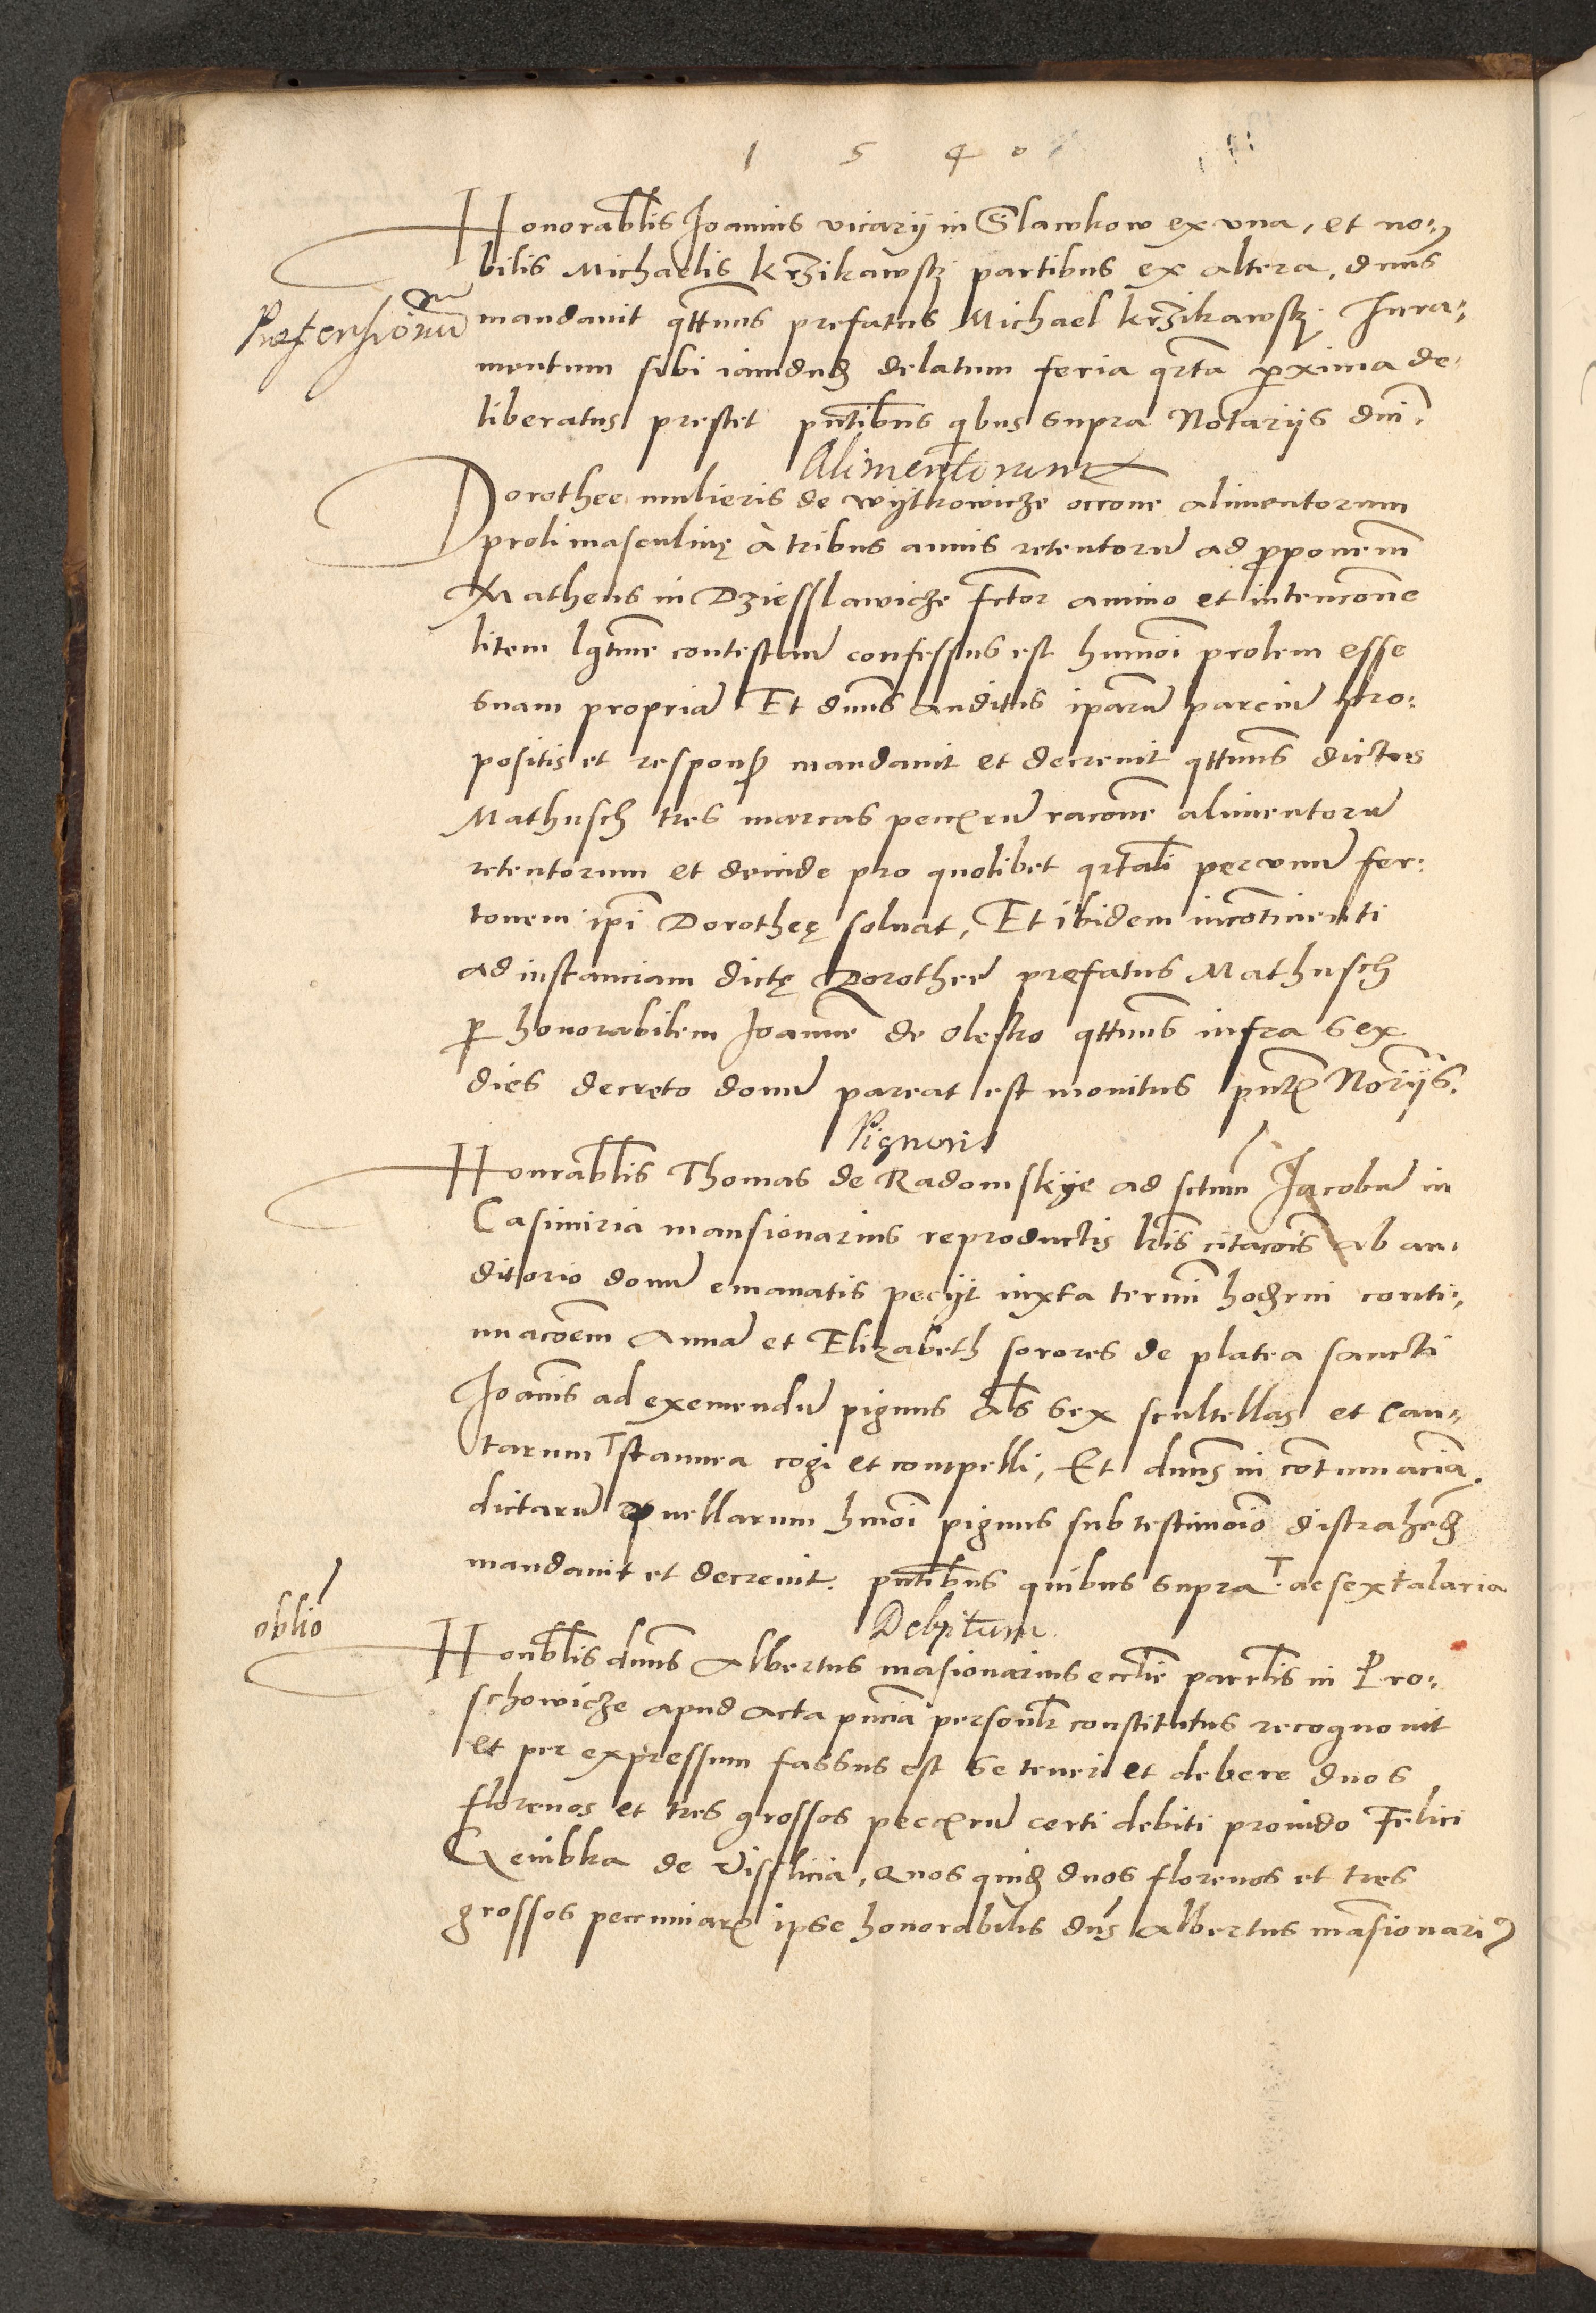 1 5 4 0
Honorablis Joannis vicarij in Slawkow ex vna, et no⸗
bilis Michaelis krzikawskj partibus ex altera, dnus
Praetensionũ
mandauit qttnus prefatus Michael krzikawskj Jura⸗
mentum sibi iamdudũ delatum feria qrta proxima de⸗
liberatus prestet pntibus qbus supra Notarijs dni.
Alimentorum
Dorothee mulieris de wytkowicze occone alimentorum
proli masculinę à tribus annis retentorũ ad proponem
Matheus in Dziesslawicze fctor animo et intencone
litem lgtme contestanũ confessus est humoi prolem esse
suam propriã Et dnus auditis iparũ parciũ pro⸗
positis et respons mandauit et decreuit qttnus dictus
Mathusch tres marcas peccrũ racone alimentorũ
retentorum et deinde pro quolibet qrtali per vnũ fer⸗
tonem ipi Dorotheę soluat, Et ibidem incontinenti
ad instanciam dictę Dorotheę prefatus Mathusch
p honorabilem Joannẽ de Olesko qttnus infra sex
dies decreto domũ pareat est monitus pnt Norijs.
Pignoris
Honrablis Thomas de Radomskye ad sctum Jacobũ in
Casimiria mansionarius reproductis lris citacois ab au⸗
ditorio domũ emanatis pecijt iuxta termi hodierni conti⸗
nuacoem Annã et Elizabeth sorores de platea sancti
Joanis ad exemendũ pignus als sex scultellas et can⸗
tarum ⸆ stannea cogi et compelli, Et dnus in contumaciã
dictarũ puellarum hmoi pignus sub testimoio distrahend
mandauit et decreuit. pntibus quibus supra ⸆. ac sex talaria
Debitum
oblio
Honblis dnus Albertus masionarius ecclie parrlis in Pro⸗
schowicze apud acta pncia personlr constitutus recognouit
et per expressum fassus est se teneri et debere duos
florenos et tres grossos peccrũ certi debiti prouido Felici
Gembka de Visslicia, Quos quidẽ duos florenos et tres
grossos pecuniar ipse honorabilis dns Albertus mansionari9